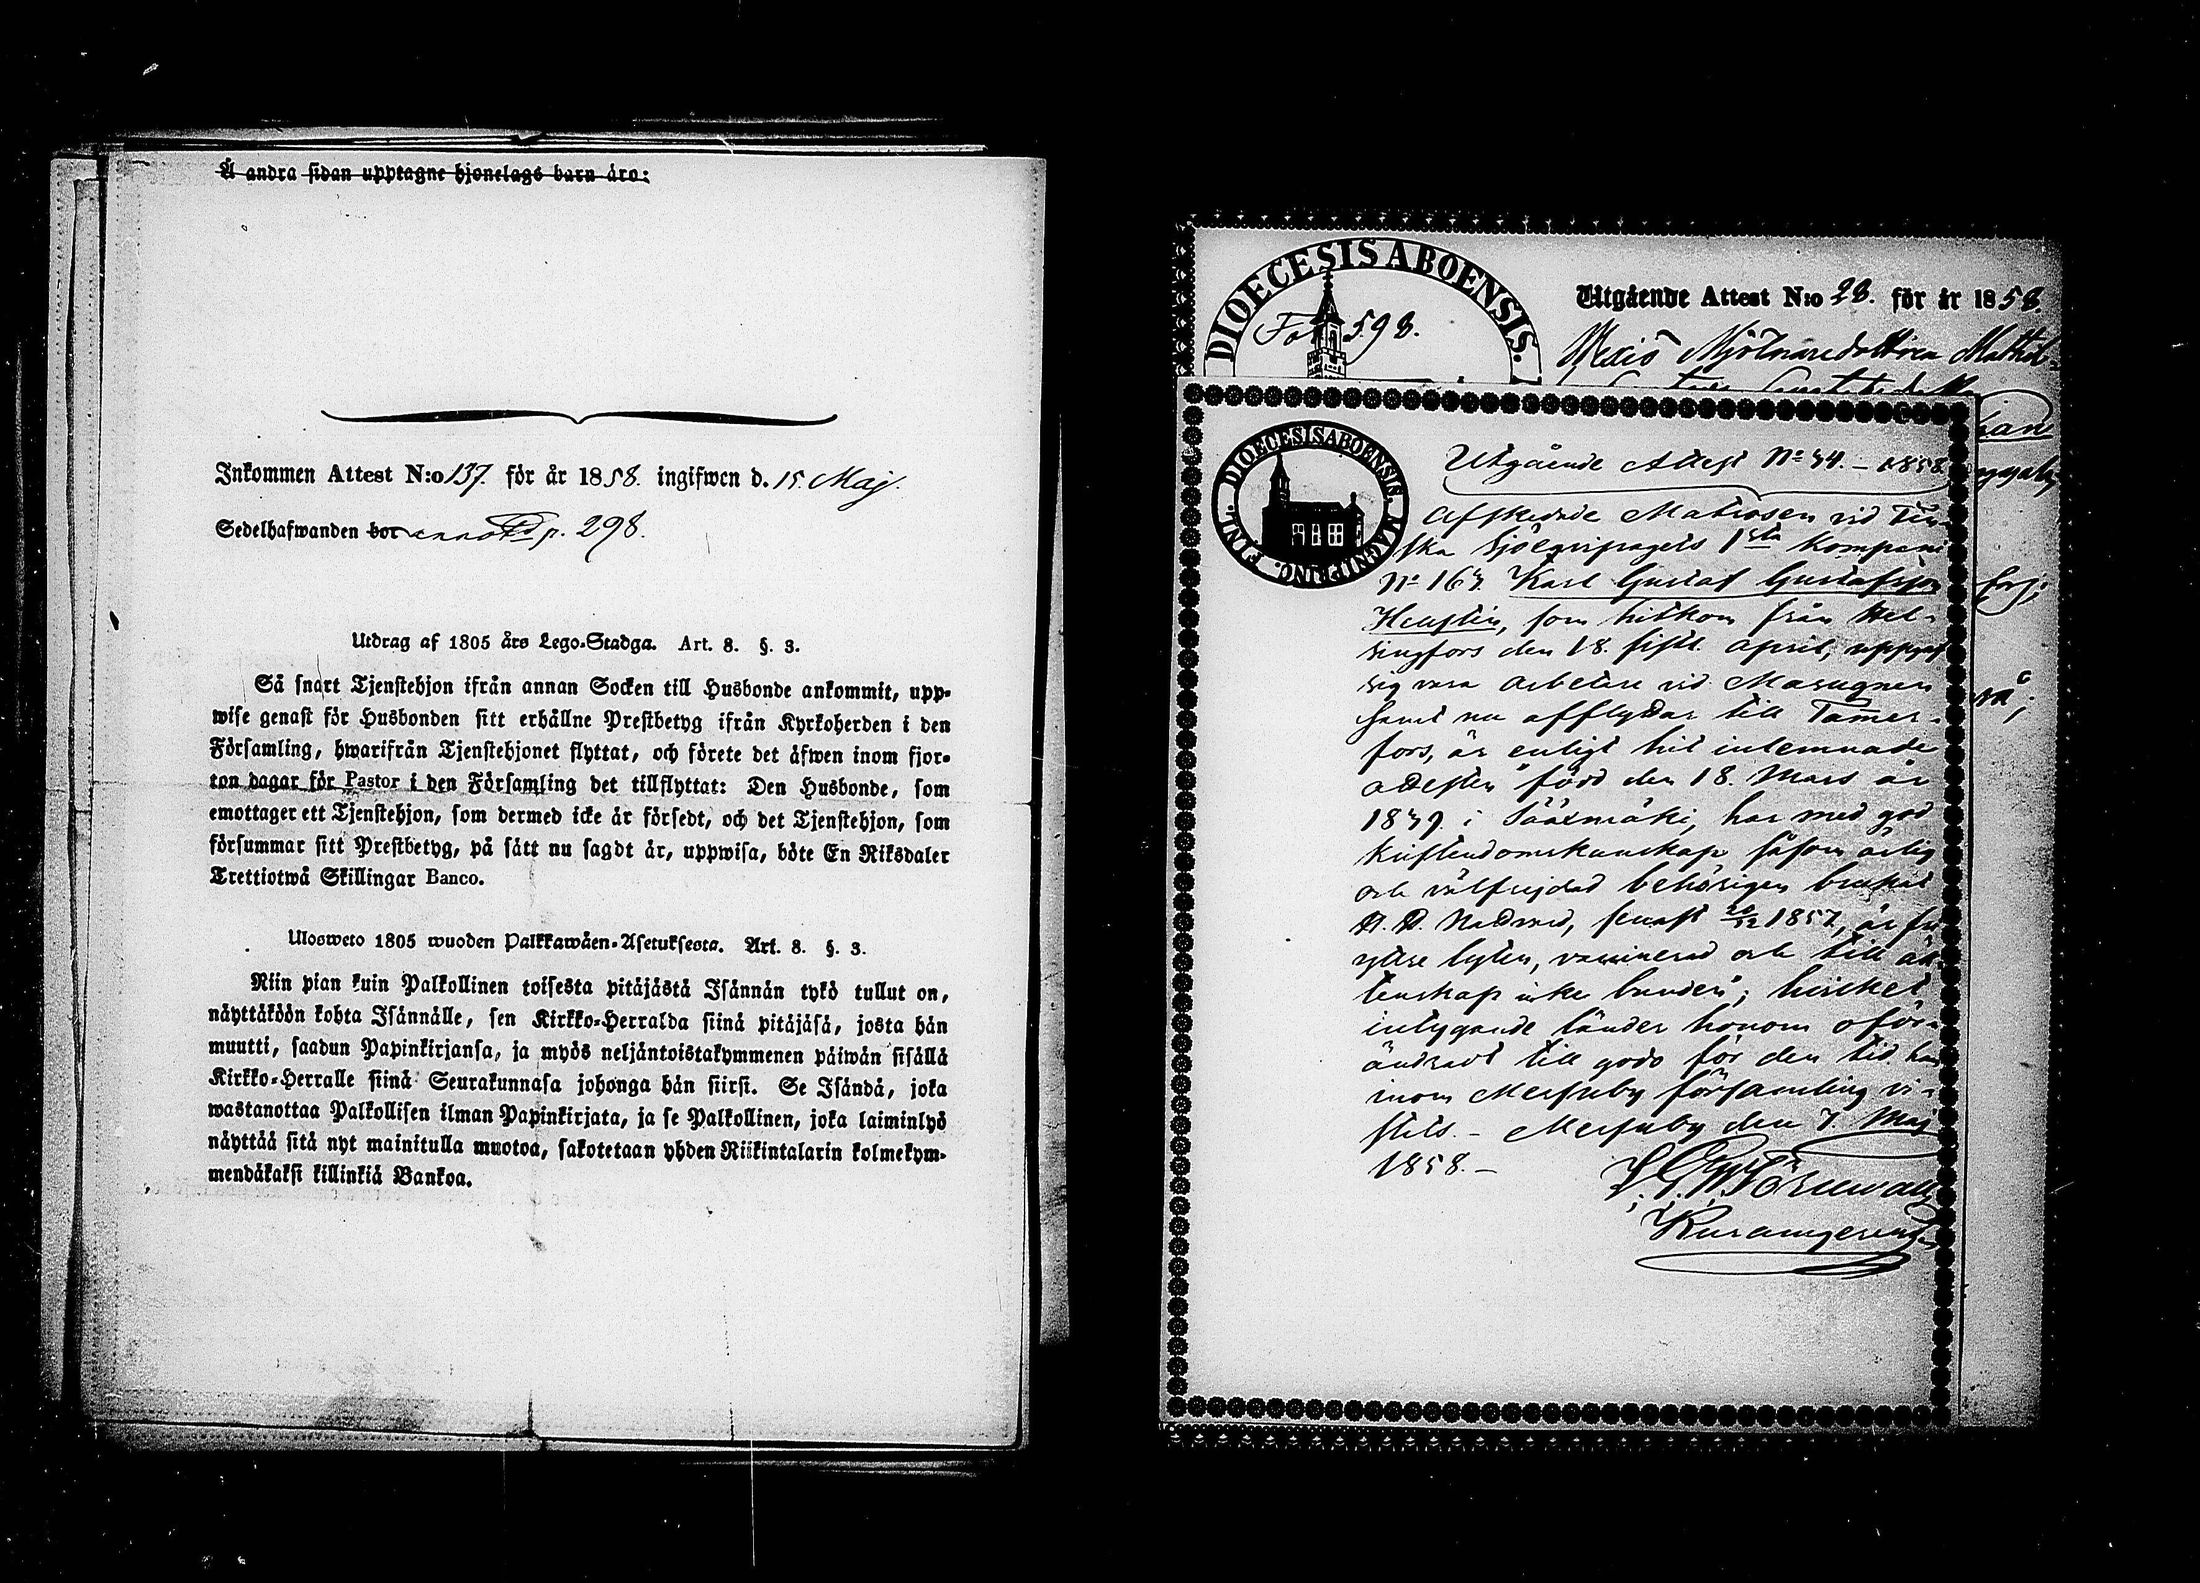 Å andra sidan upptagne hjonelags barn äro:
Inkommen Attest N:o 137. för år 1858. ingifwen d. 15. Maj.
Sedelhafwanden bor p. 298.
Utdrag af 1805 års Lego-Stadga. Art. 8. §. 3.
Så snart Tjenstehjon ifrån annan Socken till Husbonde ankommit, upp-
wise genast för Husbonden sitt erhållne Prestbetyg ifrån Kyrkoherden i den
Församling, hwarifrån Tjenstehjonet flyttat, och förete det äfwen inom fjor-
ton dagar för Pastor i den Församling det tillflyttat: Den Husbonde, som
emottager ett Tjenstehjon, som dermed icke är försedt, och det Tjenstehjon, som
försummar sitt Prestbetyg, på sätt nu sagdt är, uppwisa, böte En Riksdaler
Trettiotwå Skillingar Banco.
Ulosweto 1805 wuoden Palkkawäen-Asetuksesta. Art. 8. §. 3.
Niin pian kuin Palkollinen toisesta pitäjästä Isännän tykö tullut on,
näyttäköön kohta Isännälle, sen Kirkko-Herralda siinä pitäjäsä, josta hän
muutti, saadun Papinkirjansa, ja myös neljäntoistakymmenen päiwän sisällä
Kirkko-Herralle siinä Seurakunnasa johonga hän siirsi. Se Isändä, joka
wastanottaa Palkollisen ilman Papinkirjata, ja se Palkollinen, joka laiminlyö
näyttää sitä nyt mainitulla muotoa, sakotetaan yhden Riikintalarin kolmekym-
mendäkaksi killinkiä Bankoa.
DIOECESIS ABOENSIS.
Fol 598.
Utgående Attest N:o 28. för år 1858.
Mjölnaredottren
DIOECESIS ABOENSIS. MAGNI PRINC. FINL.
Utgående Attest No 44. – 1858
Afskedade Matrosen vid Fin-
ska Sjöequipagets 1sta Kompani
No 167. Karl Gustaf Gustafsson
som hitkom från Hel-
singfors den 18. sistl. April, uppgaf
sig vara Arbetare vid Masugnen
samt nu afflyttar till Tamer-
fors, är enligt hit inlemnade
attesten "född den 18. Mars år
i Sääxmäki, har med god
kristendomskunskap såsom ärlig
och välfrejdad behörigen brukat
H. H. Nattvard, senast 1857, är fri
lyten, vaccinerad och till äk-
tenskap icke bunden"; hvilket
intygande länder honom oför-
ändradt till godo för den tid han
inom Messuby församling vi-
stats. – Messuby den 7. Maj
1858. –